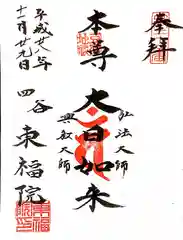 奉拝
本尊
弘法大師
大日如来
興教大師
四谷
東福院
平成廿八年
十一月廿九日